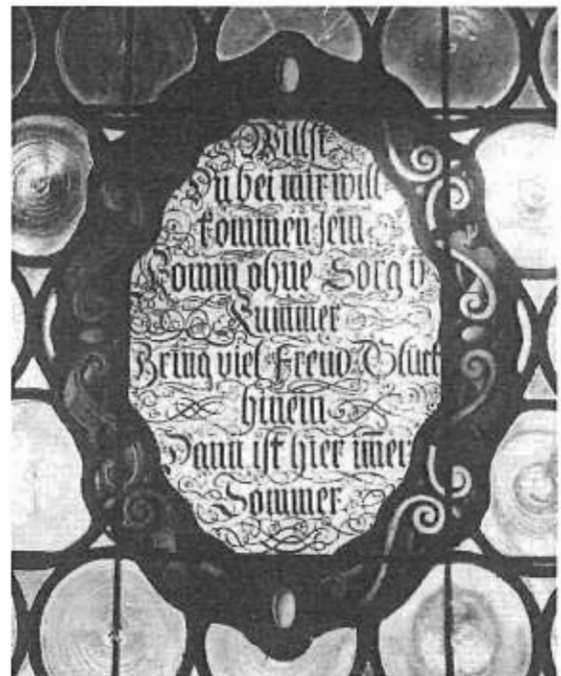 Willst
Du bei mir will
kommen sein
Komm ohne Sorg ū
Kummer
Bring viel Freud, Glück
hinein
Dann ist hier im̄er
Sommer.